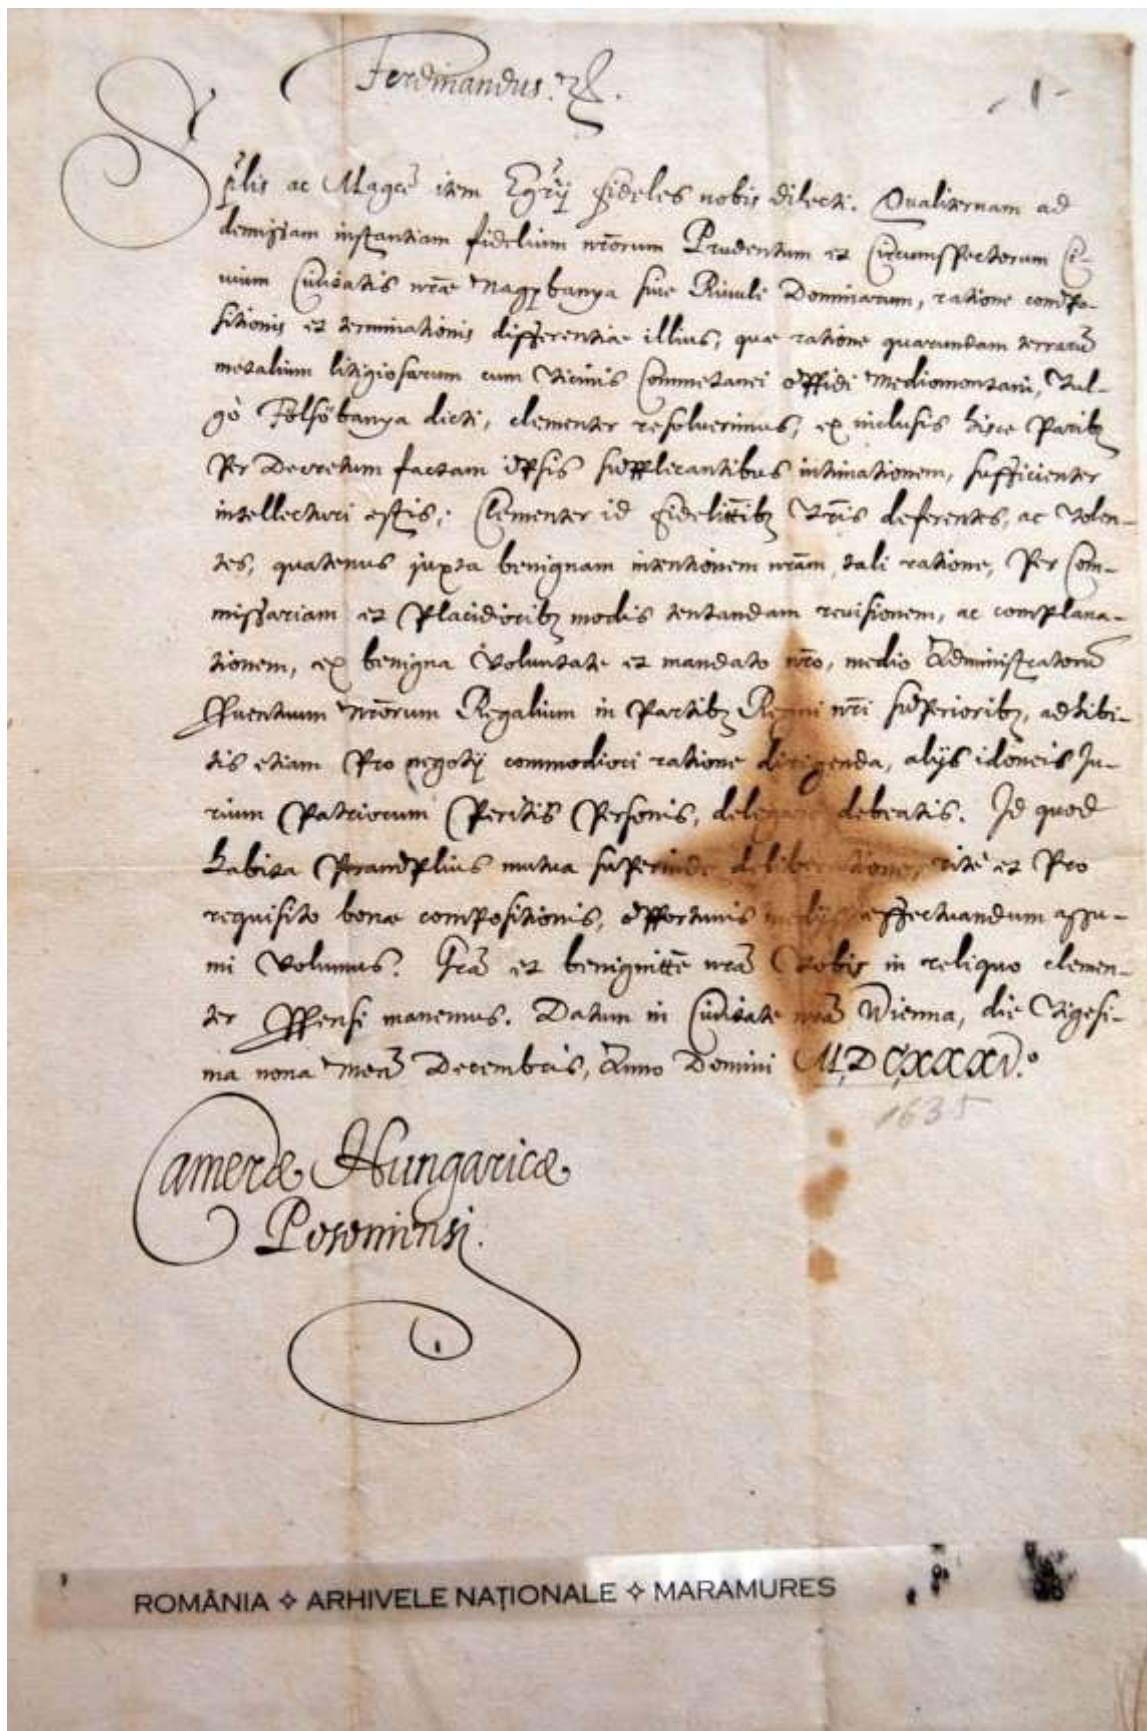 Ferdinandus. 
- 1 -
Sp̃lis ac Magce item Egrÿ fideles nobis dilecti. Qualiternam ad
demissam instantiam fidelium nrorum Prudentum et Circumspectorum Ci-
uium Ciuitatis nrae Nagybanya siue Riuuli Dominarum, ratione compo-
sitionis et terminationis differentiae illius, quae ratione quarundam terrarũ
metalium litigiosarum cum vicinis Commetanei oppidi Mediomontani, vul-
gò Fölsöbanya dicti, clementer resoluerimus, ex inclusis hisce Paribꝫ
Per Decretum factam ipsis supplicantibus intimationem, sufficienter
intellecturi estis; Clementer id fidelittibꝫ vris deferentes, ac volen-
tes, quatenus juxta benignam intentionem nram, tali ratione, Per Com-
missariam et Placidioribꝫ modis tentandam reuisionem, ac complana-
tionem, ex benigna voluntate et mandato nro, medio Administratorũ
Prouentuum nrorum Regalium in Partibꝫ Regni nri superioribꝫ, adhibi-
tis etiam Pro negotÿ commodiori ratione dirigenda, alÿs idoneis Ju-
rium Patriorum Peritis Personis, delegare debeatis. Id quod
habita Peramplius mutua superinde deliberatione, ritè et Pro
requisito bonae compositionis, opportunis medÿs effectuandum assu-
mi volumus. Grã et benignittẽ nrã vobis in reliquo clemen-
ter Propensi manemus. Datum in Ciuitate nrã Vienna, die vigesi-
ma nona Mens̃ Decembris, Anno Domini M.DC.XXXV.º
1635
Camerae Hungaricae
Posoniensi.
ROMÂNIA ✧ ARHIVELE NAȚIONALE ✧ MARAMURES